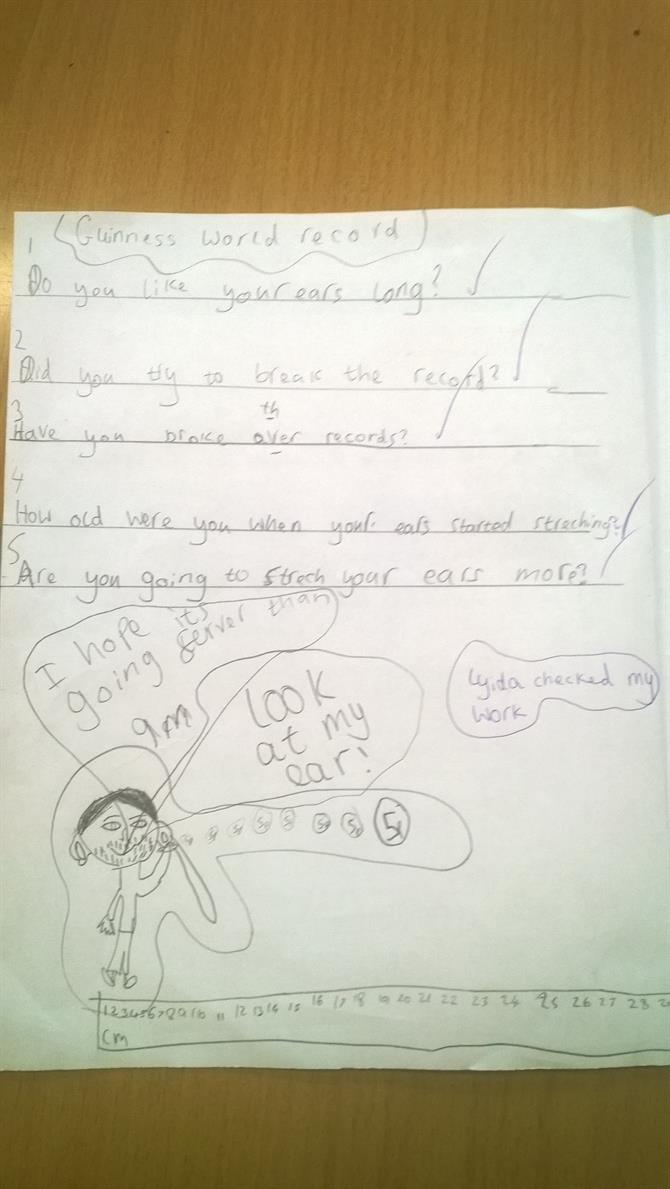 Guinness world record
1
Do you like your ears long?
2
Did you try to break the record?
3
th
Have you broke over records?
4
How old were you when your ears started streching?
5
Are you going to strech your ears more?
I hope it's
going ferver than
9m
Look
at my
ear!
Lyida checked my
work
1 2 3 4 5 6 7 8 9 10 11 12 13 14 15 16 17 18 19 20 21 22 23 24 25 26 27 28
cm